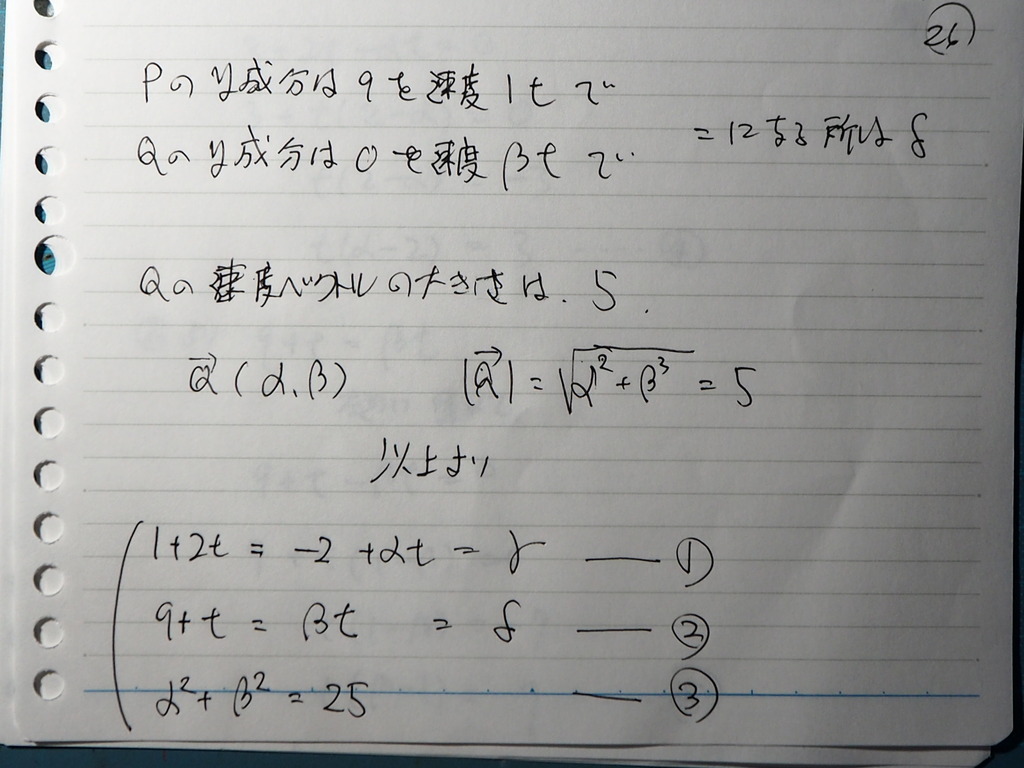 26
Pのy成分は9を速度1tで
=になる所はδ
Qのy成分は0を速度βtで
Qの速度ベクトルの大きさは. 5.
→Q (α, β) |→Q| = √α²+β³ = 5
以上より
1+2t = -2 +αt = γ —— ①
9+t = βt = δ —— ②
α²+β² = 25 —— ③